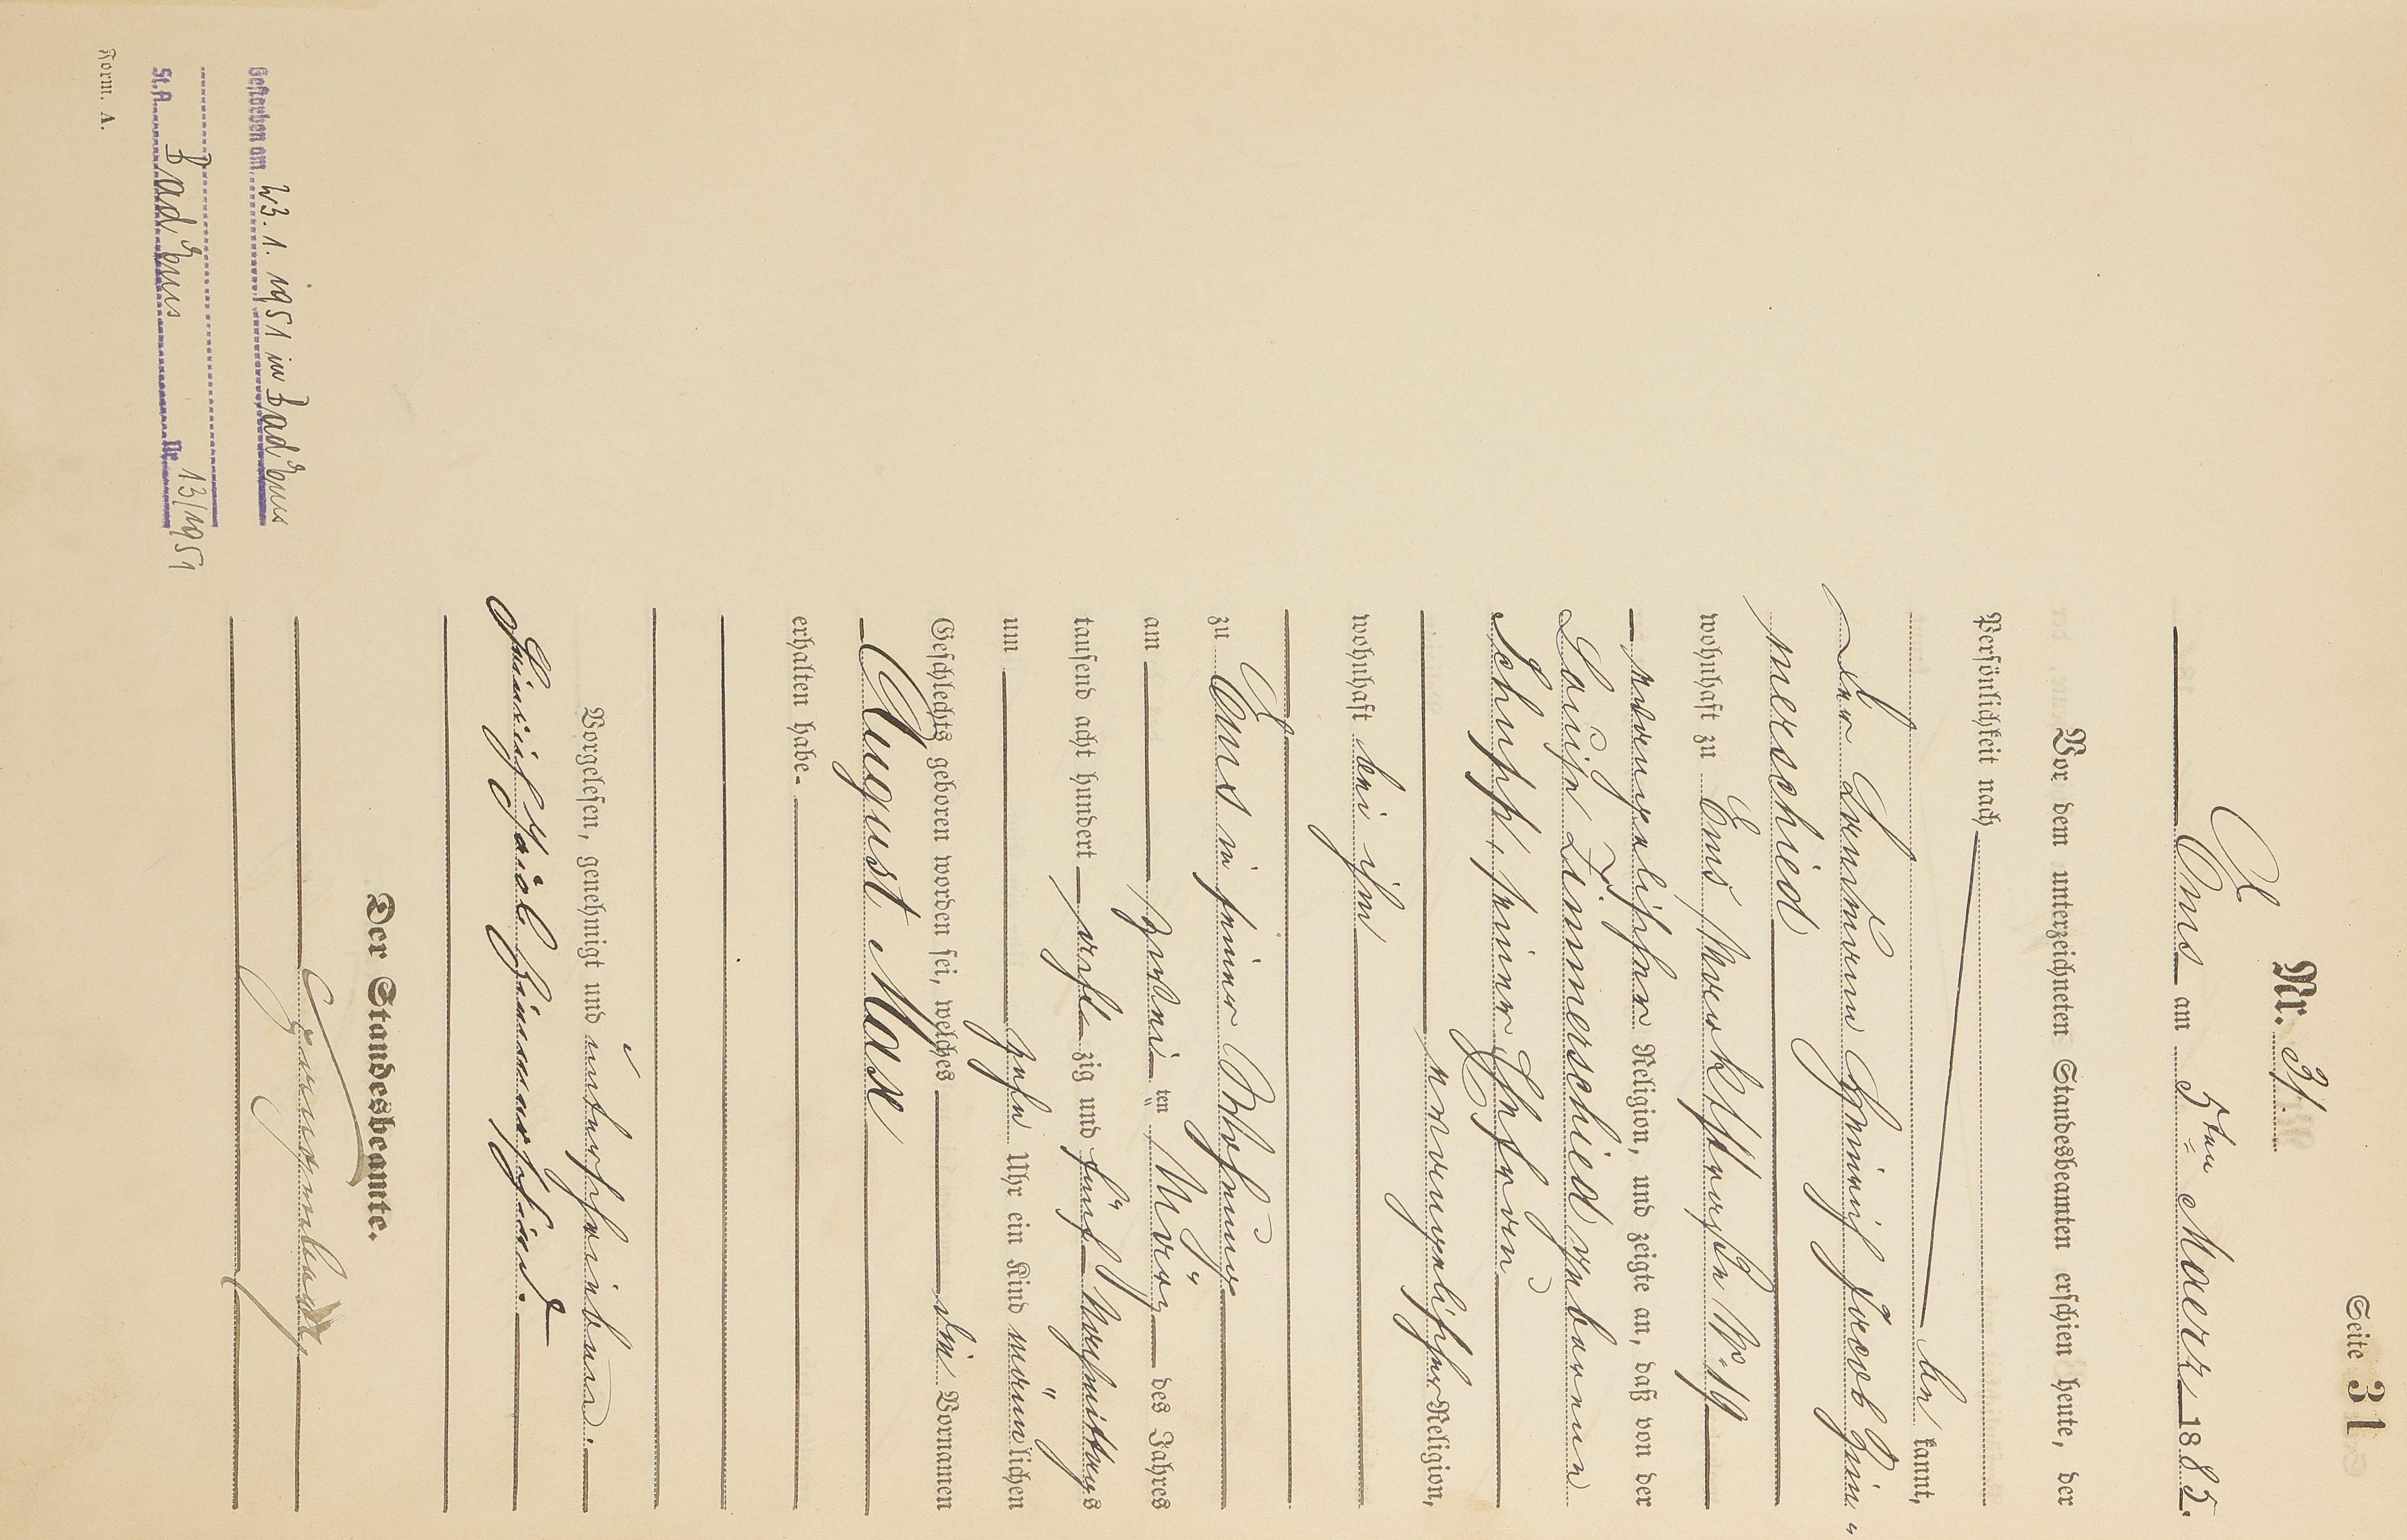 Seite 31
Nr. 31.
Ems am 5ten Maerz 1885.
Vor dem unterzeichneten Standesbeamten erschien heute, der
Persönlichkeit nach
be kannt,
der Heinrich Jacob Zim-
merschied
wohnhaft zu Ems, Marktstraße No. 19
evangelischer Religion, und zeigte an, daß von der
Louise Zimmerschied geborenen
Schupp, seiner Ehefrau
evangelischer Religion,
wohnhaft bei ihm
zu Ems in seiner Wohnung
am zweiten März des Jahres
tausend acht hundert achtzig und fünf Vormittags
um zehn Uhr ein Kind männlichen
Geschlechts geboren worden sei, welches die Vornamen
August Max
erhalten habe.
Vorgelesen, genehmigt und unterschrieben.
Heinrich Jacob Zimmerschied.
Der Standesbeamte.
Gestorben am 23.1.1951 in Bad Ems
St.A. Bad Ems Nr. 13/1951
Form. A.